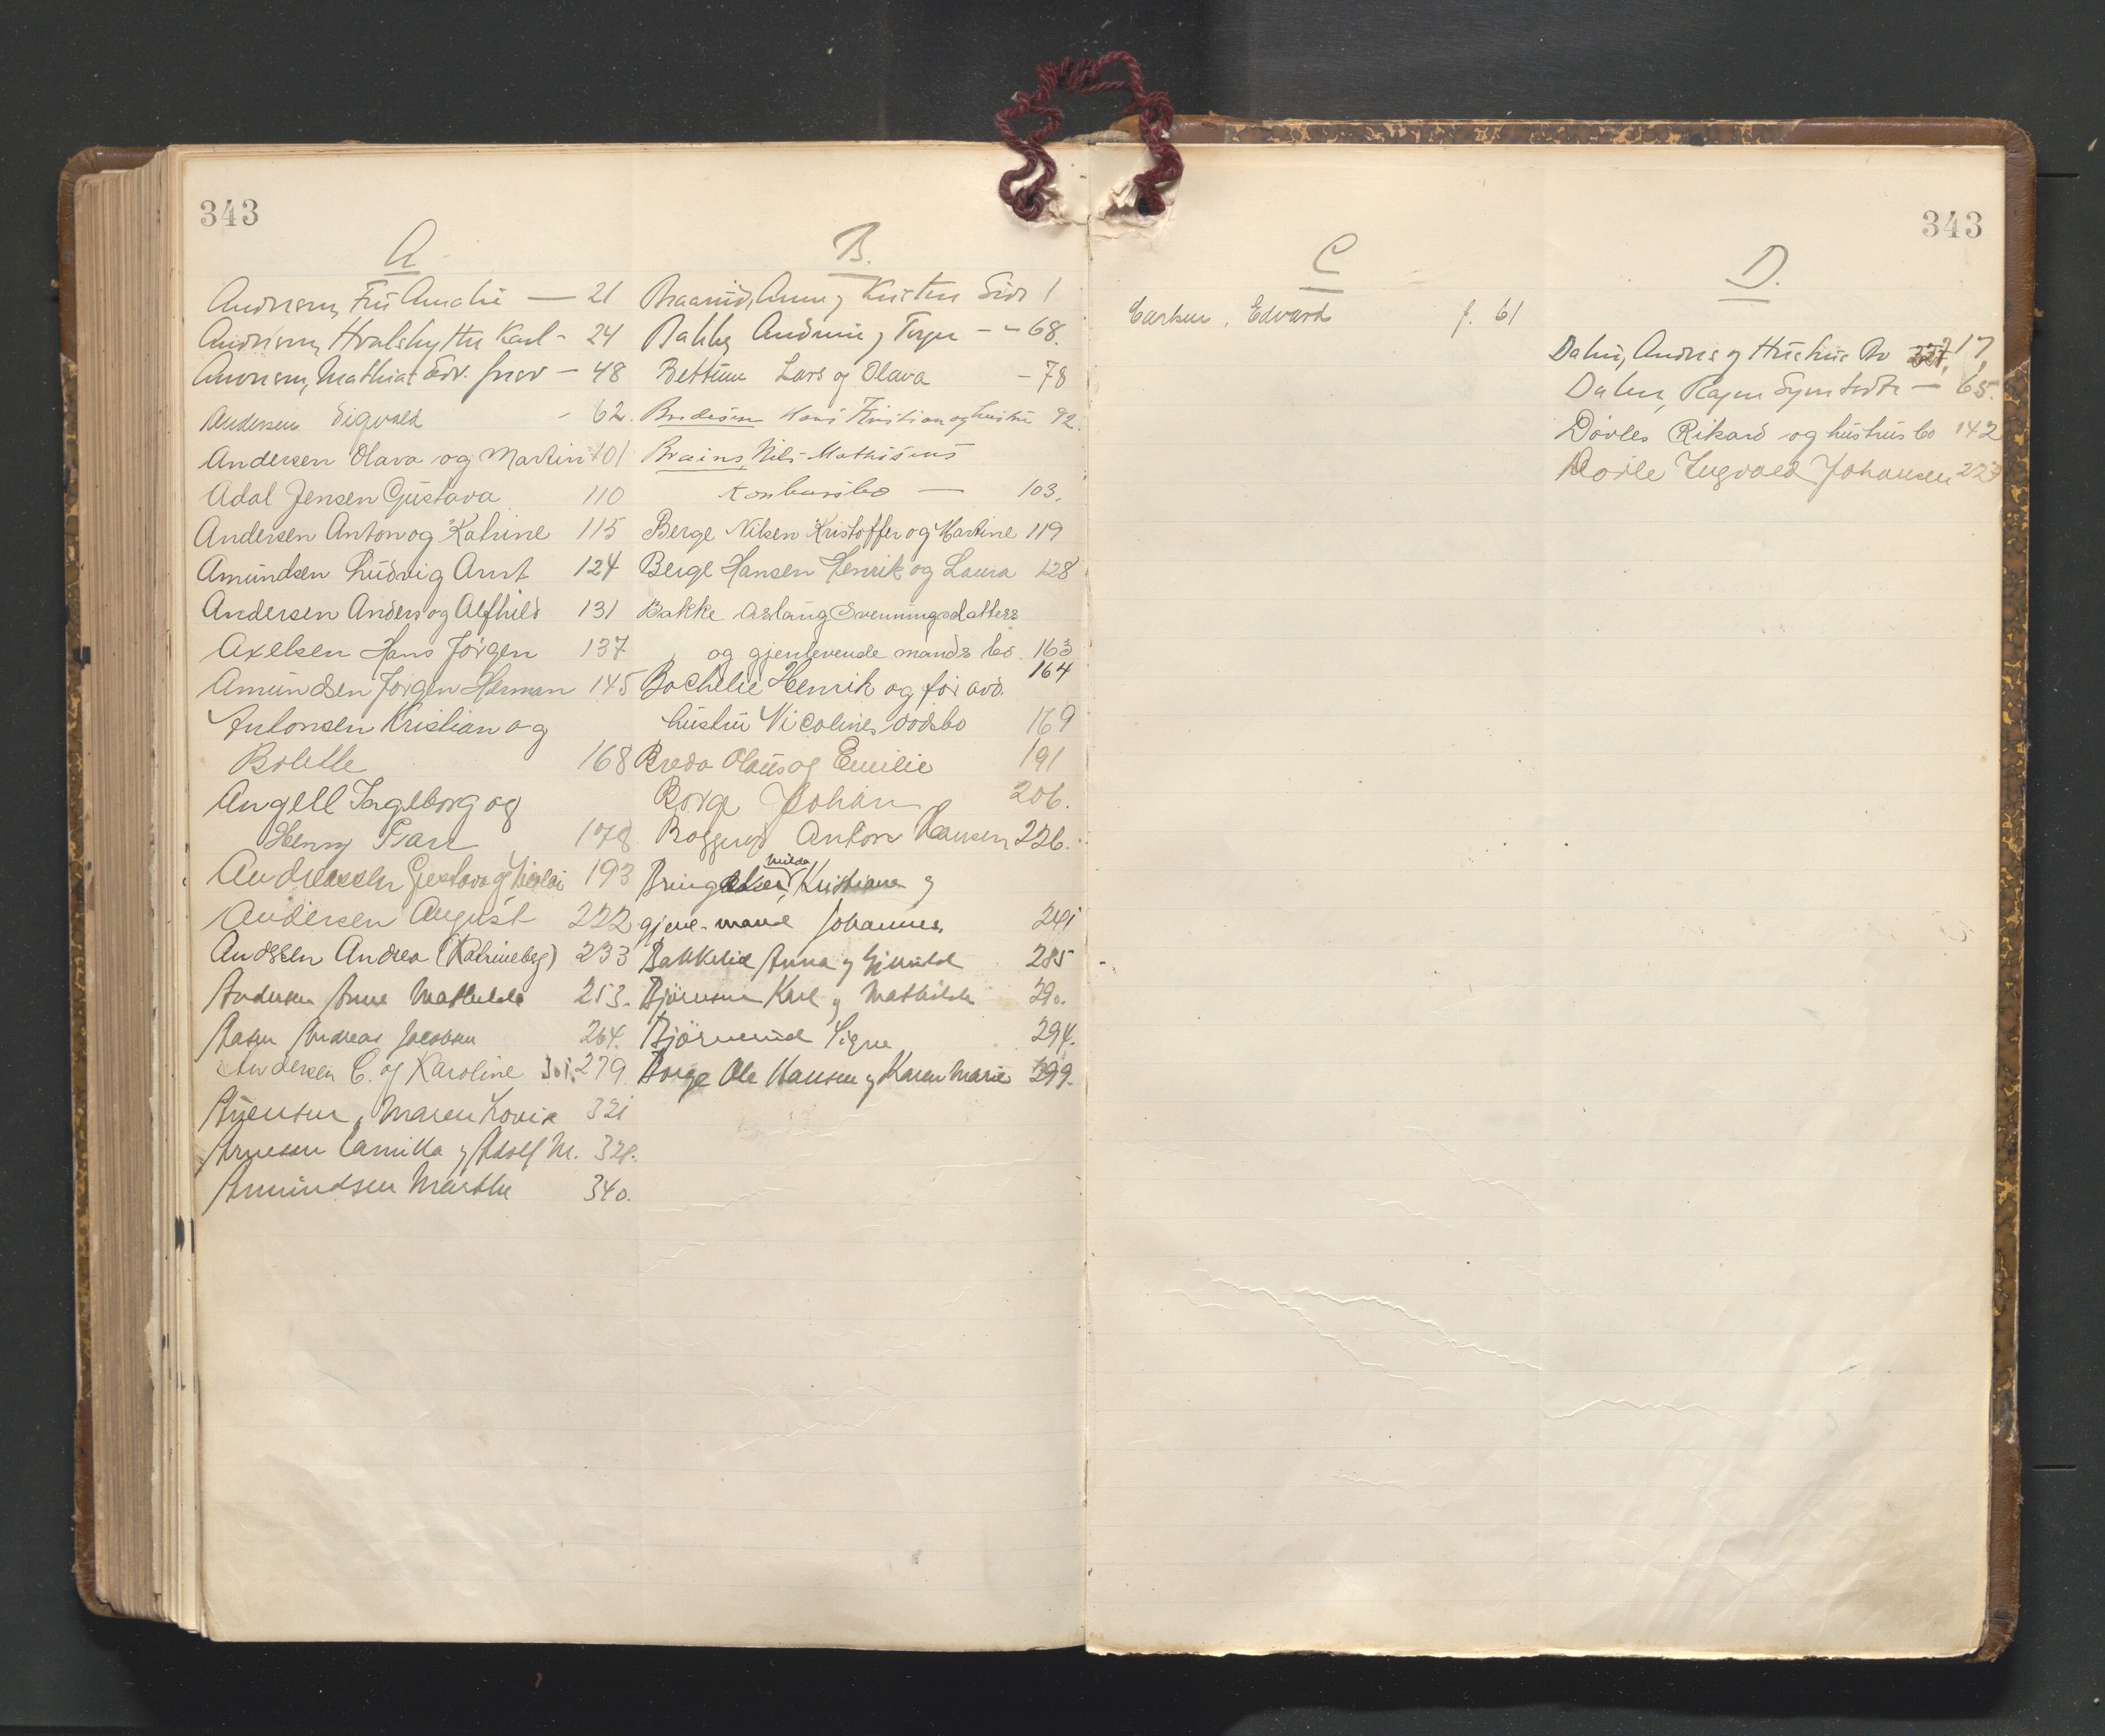 343
A
Andersen, Fru Amalie — 21
Andersen, Hvalshytte Karl - 24
Andersen, Mathias Edv. — 48
Andersen Sigvald - 62.
Andersen Olava og Martin 101
Adal Jensen Gustava 110
Andersen Anton og Katrine 115
Amundsen Ludvig Arnt 124
Andersen Anders og Alfhild 131
Axelsen Hans Jörgen 137
Amundsen Jörgen Herman 145
Antonsen Kristian og
Bolette 168
Angell Ingeborg og
Henny 178
Andreassen Gustava og Nicolai 193
Andersen August 222
Anderssen Andrea (Katrineberg) 233
Andersen Anne Mathilde 253.
Aasen Andreas Jacobsen 264.
Andersen C. og Karoline 301. 279.
Maren Lovise 321
Arnesen Camilla og Adolf M. 328.
Amundsen Marthe 340.
B.
Anne og Kirsten Side 1
Bakke, og - - 68.
Bettum Lars og Olava - 78
Bredesen Hans Kristian og hustru 92.
Braines, Nils Mathisens
Konkursbo — 103.
Berge Nilsen Kristoffer og Martine 119
Berge Hansen Henrik og Laura 128
Bakke Aslaug Svenningsdatters
og gjenlevende mands bo. 163
164
Bochelie Henrik og før avd.
hustru Nicolines dödsbo 169
Breda Olaus og Emilie 191
Borge Johan 206.
Anton Hansen 226.
Milda
Kristiane og
gjenl. mand Johannes, 241
Bakkelid Anna og 285
Björnsen Karl og Mathilde 290.
Signe 294.
Borge Ole Hansen og Karen Marie 299.
343
C
Edvard f. 61
D.
Dalen, Andres og Hustrus Bo 217,
Dalen, — 65.
Dövles Rikard og hustrus bo 142
Ingvald Johansen 223